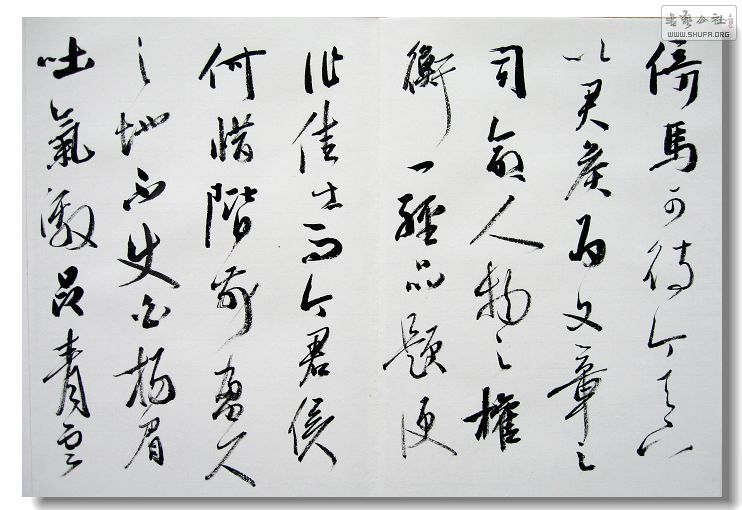 倚馬可待今天下
以君侯為文章之
司命人物之權
衡一經品題便
作佳士而今君侯
何惜階前盈尺
之地不使白揚眉
吐氣激昂青雲
書藝公社
WWW.SHUFA.ORG